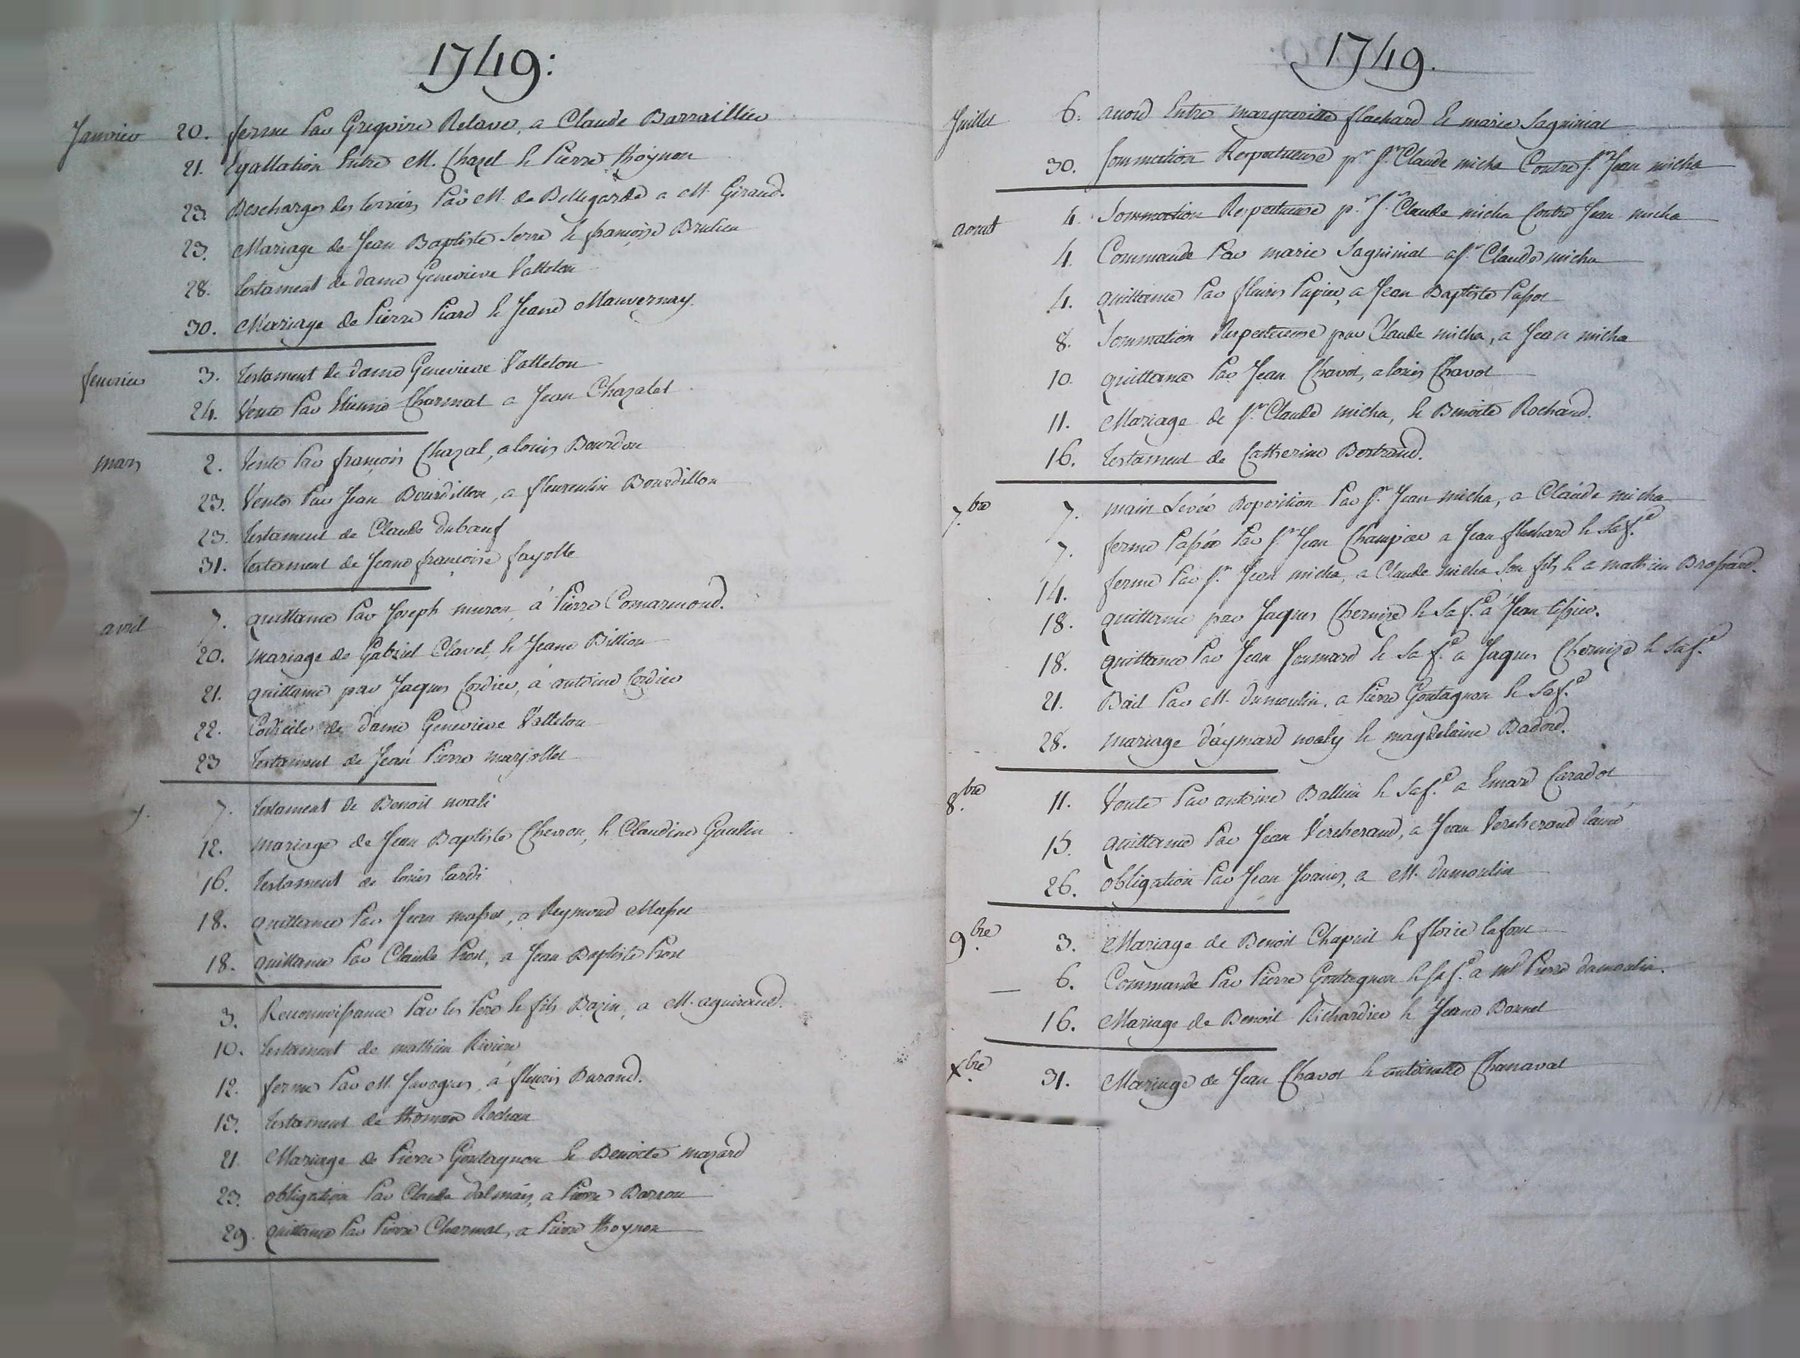 1749:
Janvier 20. ferme Par Gregoire Relave, a Claude Barraillier
21. Egallation Entre M. Chazel & Pierre thoynon
23. Descharges des terriers Par M. de Bellegarde a M. Giraud.
23. Mariage de Jean Baptiste Serre & françoise Brulieu
28. testament de dame Genevieve Valleton
30. Mariage de Pierre Piard & Jeane Mauvernay.
fevrier 3. testament de dame Genevieve Valleton
24. Vente Par Etienne Charmat a Jean Chazalet
Mars 2. Vente Par françois Chazal, a louis Bourdon
23. Vente Par Jean Bourdillon, a fleurentin Bourdillon
23. testament de Claude dubœuf
31. testament de Jeane françoise fayolle
avril 7. quittance Par Joseph muron, à Pierre Comarmond.
20. mariage de Gabriel Clavel, & Jeane Billion
21. quittance par Jaques Cordier, à antoine Cordier
22. Codicile de dame Genevieve Valleton
23 testament de Jean Pierre marjollet
7. testament de Benoit noali
12. mariage de Jean Baptiste Cheron, & Claudine Goulin
16. testament de louis tardi
18. quittance Par Jean massot, a Reymond Massot
18. quittance Par Claude Prost, a Jean Baptiste Prost
3. Reconnoissance Par les Pere & fils Bazin, a M. aguiraud.
10. testament de mathieu Riviere
12. ferme Par M. Javogues, à fleuris Durand.
13. testament de thomas Rochan
21. Mariage de Pierre Goutagnon & Benoite mazard
23. obligation Par Claude dalmais, a Pierre Barrou
29. quittance Par Pierre Charmat, a Pierre thoynon
1749.
Juillet 6. acord Entre margueritte flachard & marie Sagninial
30. Sommation Respectueuse pr. Sr. Claude micha Contre Sr. Jean micha
aoust 4. Sommation Respectueuse pr. Sr. Claude micha Contre Jean micha
4. Commande Par marie Sagninial a Sr. Claude micha
4. quittance Par fleuris Papier, a Jean Baptiste Passot
8. Sommation Respectueuse par Claude micha, a Jean micha
10. quittance Par Jean Chavot, a louis Chavot
11. Mariage de Sr. Claude micha, & Benoite Rochard.
16. testament de Catherine Bertrand.
7.bre 7. main Levée Doposition Par Sr. Jean micha, a Claude micha
7. ferme Passée Par Sr. Jean Champier a Jean flachard & Sa fe.
14. ferme Par Sr. Jean micha, a Claude micha Son fils & a mathieu Brossard.
18. quittance par Jaques Chermize & Sa fe. à Jean tissier.
18. quittance Par Jean Jommard & Sa fe. a Jaques Chermize & Sa fe.
21. Bail Par M. dumoulin, a Pierre Goutagnon & Sa fe.
28. mariage d'aymard noaly & magdelaine Badord.
8.bre 11. Vente Par antoine Ballun & Sa fe. a Emard Caradot
15. quittance Par Jean Vercherand, a Jean Vercherand lainé
26. obligation Par Jean Joanis, a M. dumoulin
9.bre 3. Mariage de Benoit Chapuit & florie lafont
6. Commande Par Pierre Goutagnon & Sa fe. a md. Pierre dumoulin.
16. Mariage de Benoit Richardier & Jeane Bonnet
X.bre 31. Mariage de Jean Chavot & antoinette Chanaval